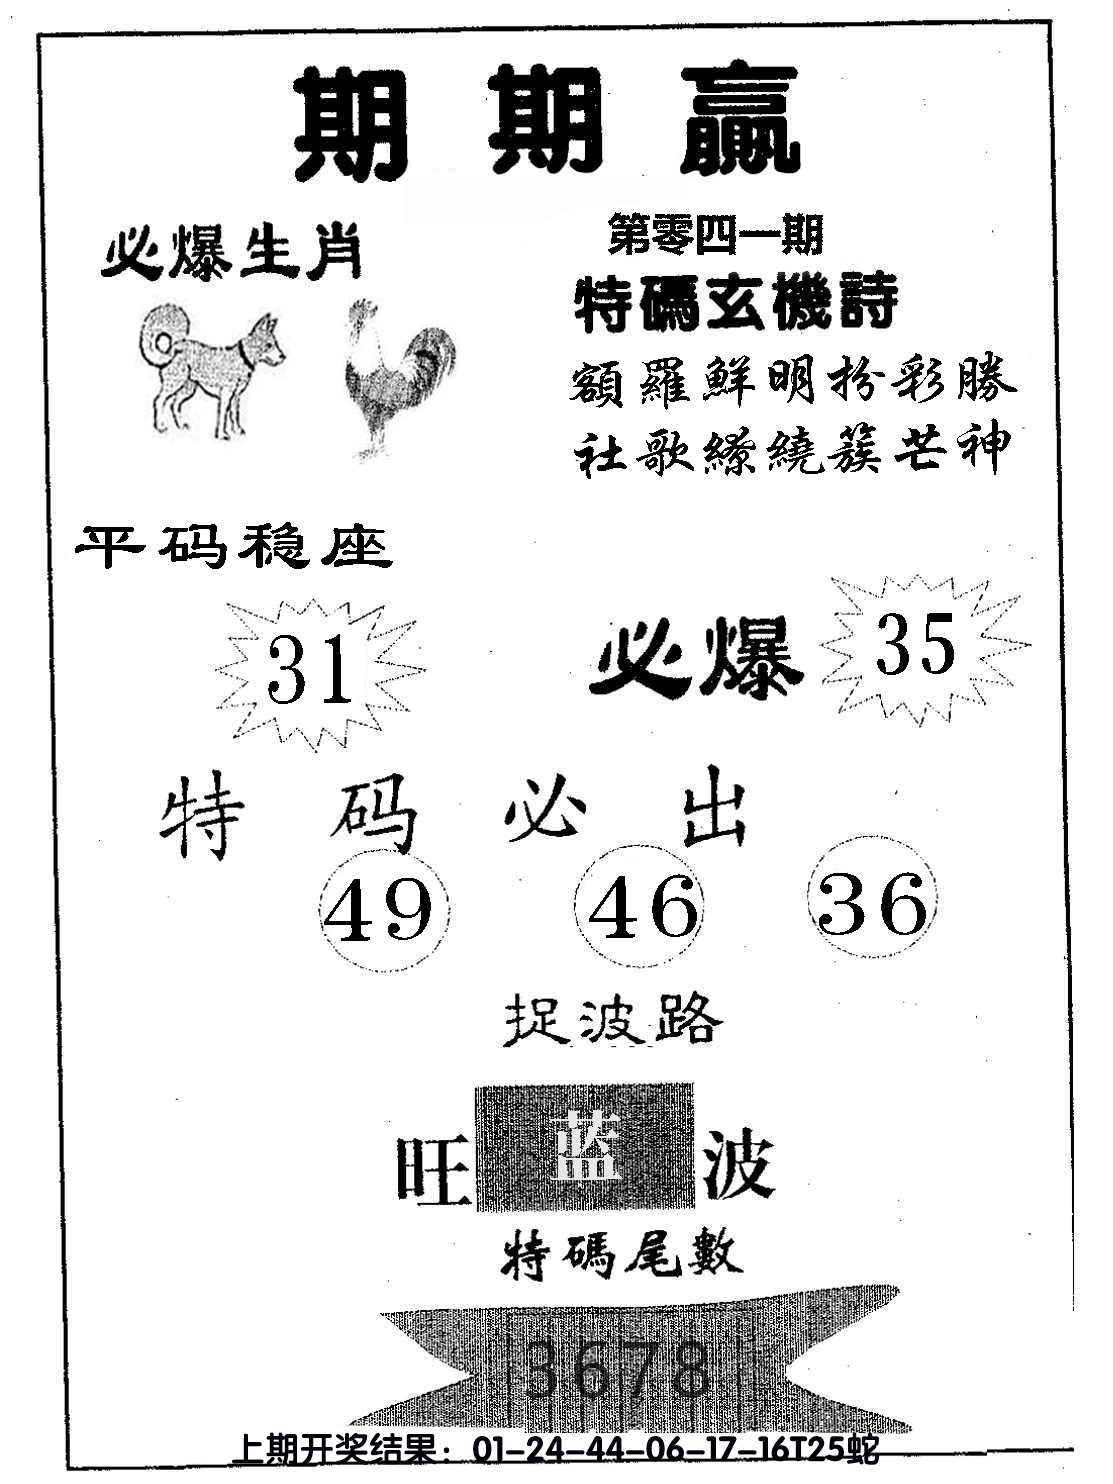 期期赢
必爆生肖
第零四一期
特碼玄機詩
額羅鮮明扮彩勝
社歌繚繞簇芒神
平码稳座
31
必爆 35
特码必出
49 46 36
捉波路
旺 蓝 波
特碼尾數
3678
上期开奖结果：01-24-44-06-17-16T25蛇